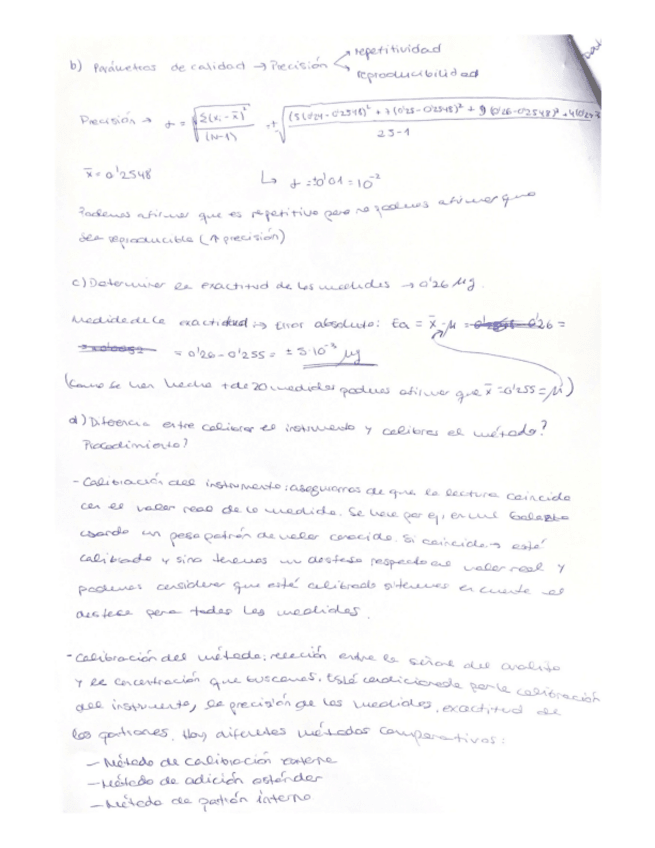 b) Parámetros de calidad → Precisión < repetitividad
reproducibilidad
Precisión → s = √ Σ(xi - x̄)² / (N-1) = ± √ (5(0'24-0'2548)² + 7(0'25-0'2548)² + 9(0'26-0'2548)² + 4(0'27
25-1
x̄ = 0'2548 ↳ s = ±0'01 = 10⁻²
Podemos afirmar que es repetitivo pero no podemos afirmar que
sea reproducible (↑ precisión)
c) Determinar la exactitud de las medidas → 0'26 µg.
Medida de la exactitud → Error absoluto: Ea = x̄ - µ = 0'26 =
= 0'26 - 0'255 = ± 5·10⁻³ µg
(Como se han hecho + de 20 medidas podemos afirmar que x̄ = 0'255 = µ)
d) Diferencia entre calibrar el instrumento y calibrar el método?
Procedimiento?
- Calibración del instrumento: asegurarnos de que la lectura coincida
con el valor real de la medida. Se hace por ej, en una balanza
usando un peso patrón de valor conocido. Si coincide → está
calibrado y si no tenemos un desfase respecto al valor real y
podemos considerar que está calibrado si tenemos en cuenta el
desfase para todas las medidas.
- Calibración del método: relación entre la señal del analito
y la concentración que buscamos. Está condicionada por la calibración
del instrumento, la precisión de las medidas, exactitud de
los patrones. Hay diferentes métodos comparativos:
- Método de calibración externa
- Método de adición estándar
- Método de patrón interno